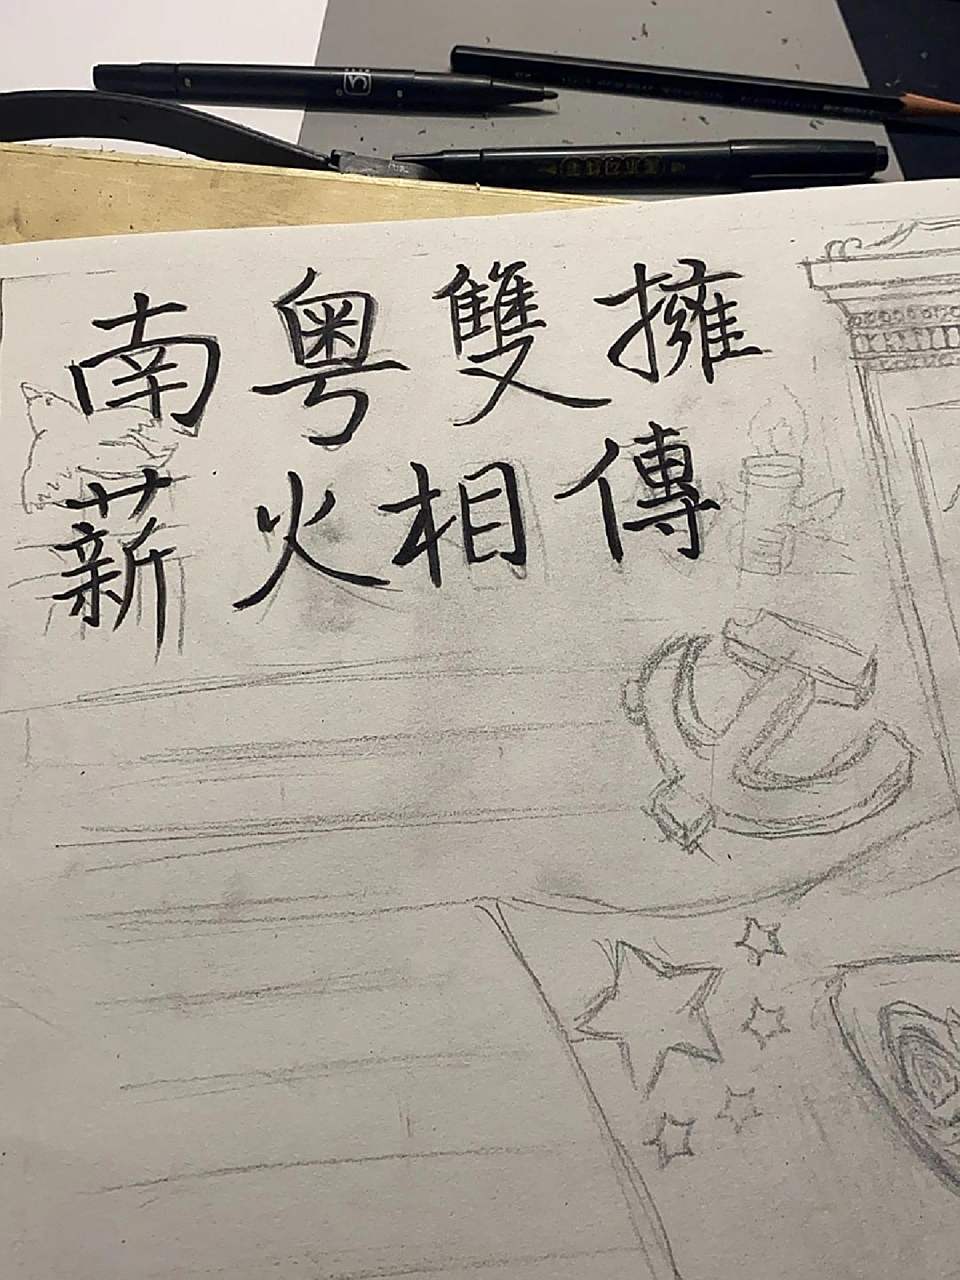 南粤雙擁
薪火相傳